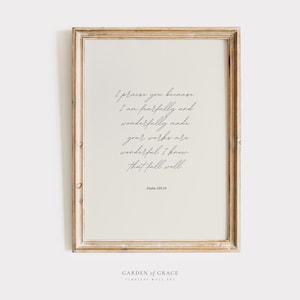 I praise you because
I am fearfully and
wonderfully made
your works are
wonderful, I know
that full well.
Psalm 139:14
GARDEN of GRACE
TIMELESS WALL ART